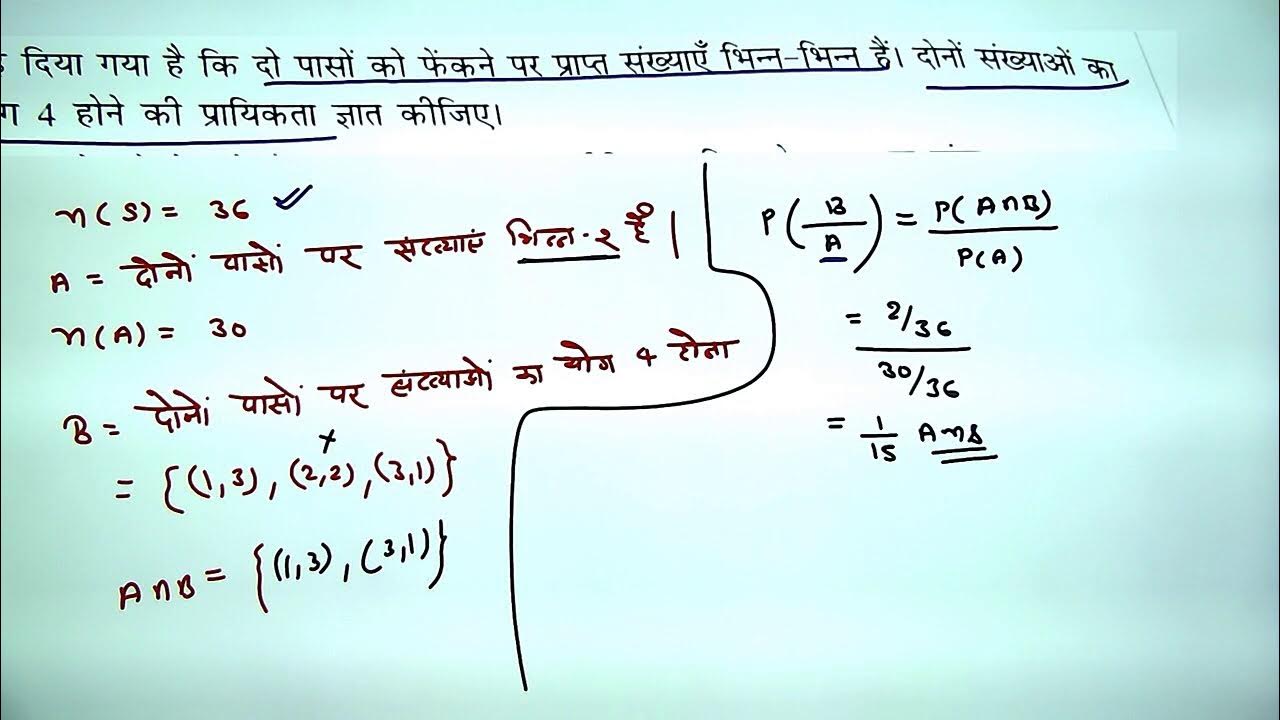 दिया गया है कि दो पासों को फेंकने पर प्राप्त संख्याएँ भिन्न-भिन्न हैं। दोनों संख्याओं का
4 होने की प्रायिकता ज्ञात कीजिए।
n(S) = 36
A = दोनों पासों पर संख्याएं भिन्न-२ है।
n(A) = 30
B = दोनों पासों पर संख्याओं का योग 4 होना
x
= {(1,3), (2,2), (3,1)}
A∩B = {(1,3), (3,1)}
P(B/A) = P(A∩B)/P(A)
= 2/36
30/36
= 1/15 Ans